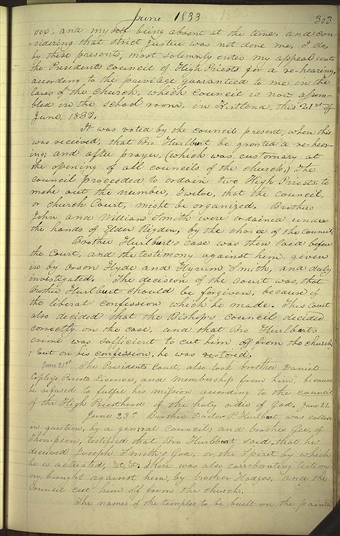 June 1833 303
and myself being absent at the time, and con-
sidering that strict justice was not done me, I do,
by these presents, most solemnly enter my appeal unto
the Presidents Council of High Priests for a re-hearing,
according to the privilege guaranteed to me in the
laws of the church, which Council is now assem-
bled in the school room, in Kirtland, this 21st of
June, 1833.
It was voted by the council present, when this
was received, that Bro Hurlburt be granted a re-hear-
ing and after prayer, (which was customary at
the opening of all councils of the church,) the
council proceeded to ordain two High Priests to
make out the number, Twelve, that the council,
or church Court, might be organized. Brothers
John and William Smith were ordained under
the hands of Elder Rigdon, by the choice of the Council.
Brother Hurlburt's case was then laid before
the Court, and the testimony against him given
in by Orson Hyde and Hyrum Smith, and duly
investigated. The decision of the Court was that
Brother Hurlburt should be forgiven, because of
the liberal confession which he made. This court
also decided that the Bishop's council decided
correctly on the case, and that Bro Hurlburt's
crime was sufficient to cut him off from the church;
but on his confession, he was restored.
June 21st The Presidents Court, also took brother Daniel
Copley's Priests License, and membership from him, because
he refused to fulfil his mission according to the council
of the High Priesthood of the holy order of God, June 21.
June 23d Brother Doctor P. Hurlburt was called
in question, by a general council; and brother Gee, of
Thompson, testified that Bro Hurlburt said that he
deceived Joseph Smith's God, or the Spirit by which
he is actuated, &c. &c. There was also corroborating testimo-
ny brought against him, by brother Hodges, and the
council cut him off from the church.
The names of the temples to be built on the painted